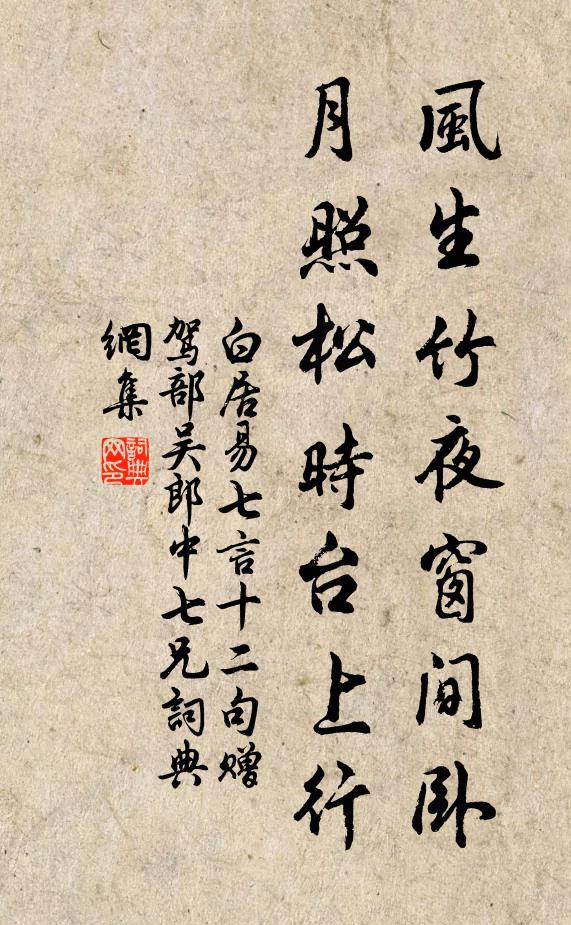 風生竹夜窗間臥
月照松時台上行
白居易七言十二句贈
駕部吳郎中七兄詞典
網集
詞典
网印